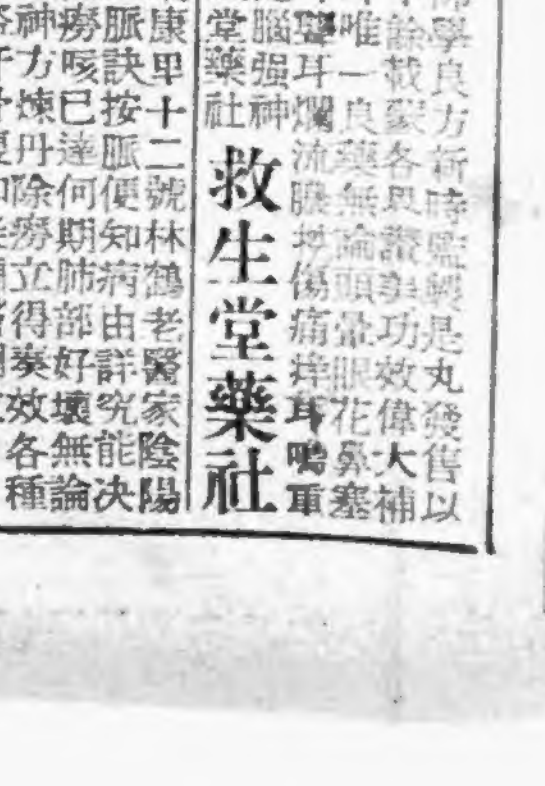 學良方新時監製是丸發售以
餘載蒙各界讚美功效偉大補
唯一良藥無論頭暈眼花鼻塞
聾耳爛流膿切傷痛痒耳鳴重
腦强神
堂藥社
救生堂藥社
康里十二號林鶴老醫家陰陽
脈訣按脈便知病由詳究能决
癆咳已達何期肺部好壞無論
神方煉丹除癆立得奏效各種